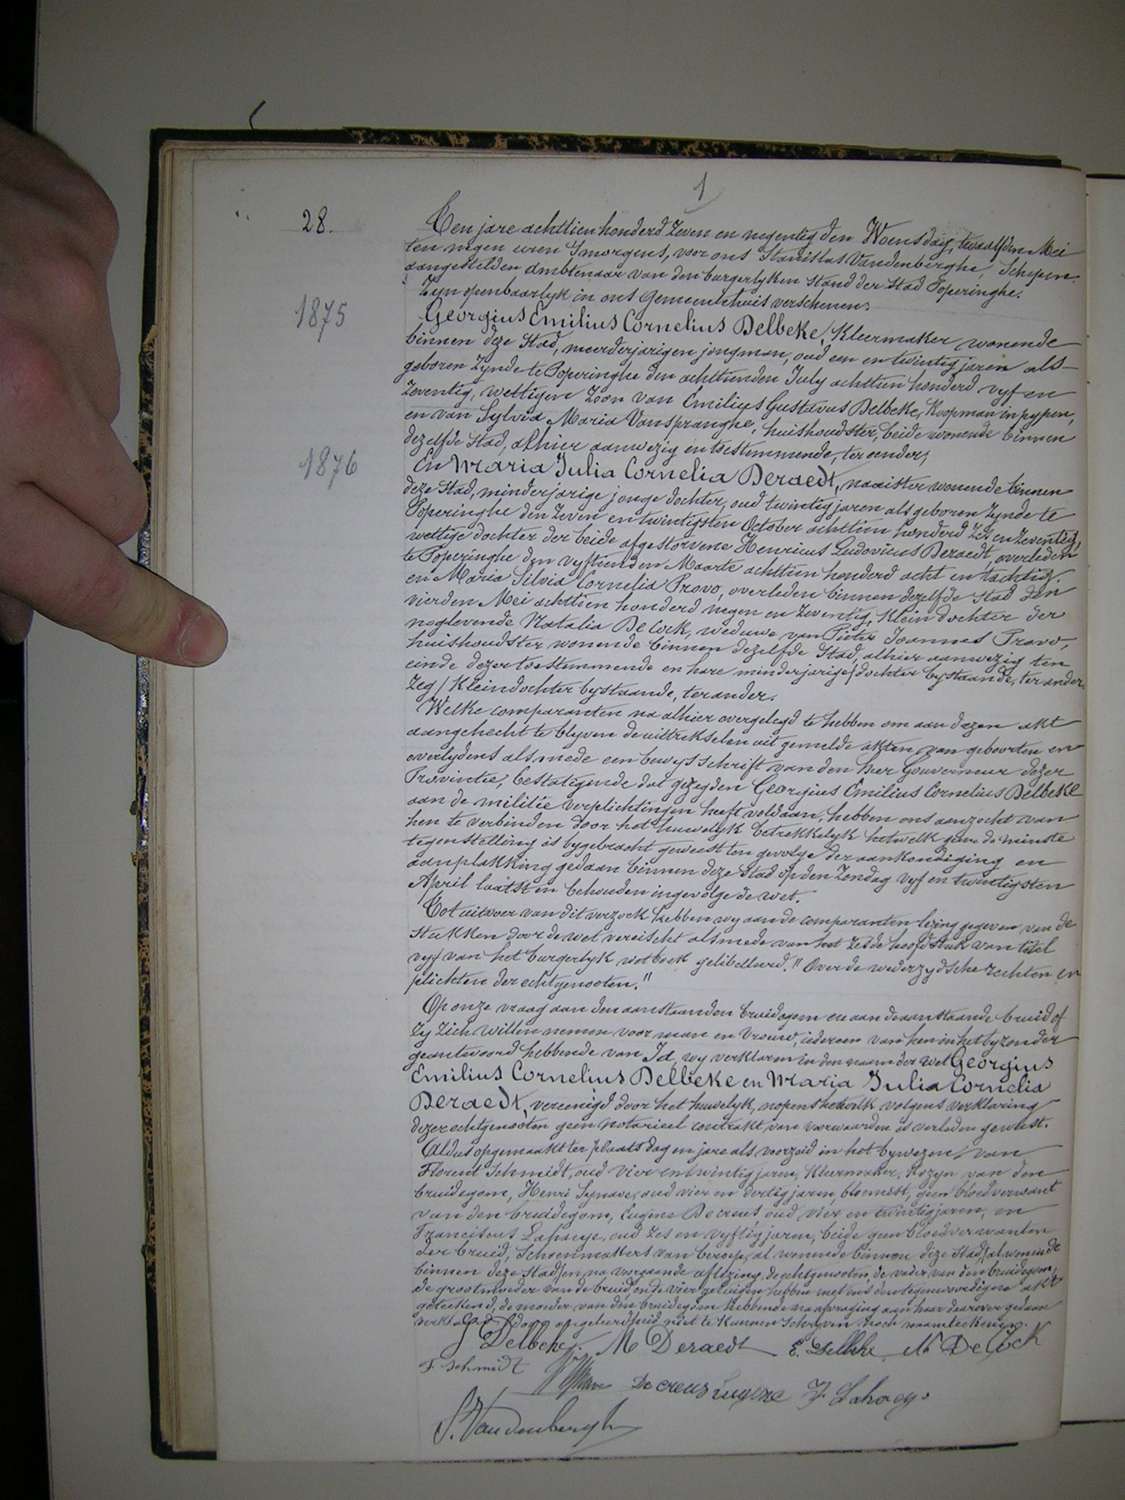 1
28.
Ten jare achttien honderd zeven en negentig den Woensdag, twaalfden Mei
ten negen uren smorgens, voor ons Stanislas Vandenberghe, Schepen
aangestelden Ambtenaar van den burgerlyken stand der Stad Poperinghe.
Zyn openbaarlyk in ons Gemeentehuis verschenen:
1875
Georgius Emilius Cornelius Delbeke, Kleermaker wonende
binnen deze Stad, meerderjarigen jongman, oud een en twintig jaren als
geboren zynde te Poperinghe den achttienden July achttien honderd vyf en
zeventig, wettigen zoon van Emilius Gustavus Delbeke, Koopman in pypen,
en van Sylvia Maria Vanspranghe, huishoudster, beide wonende binnen
dezelfde Stad, alhier aanwezig en toestemmende, ter eender;
1876
En Maria Julia Cornelia Deraedt, naaister wonende binnen
deze Stad, minderjarige jonge dochter, oud twintig jaren als geboren zynde te
Poperinghe den zeven en twintigsten October achttien honderd zes en zeventig,
wettige dochter der beide afgestorvene Henricus Ludovicus Deraedt, overleden
te Poperinghe den vyftienden Maarte achttien honderd acht en tachtig,
en Maria Silvia Cornelia Provo, overleden binnen dezelfde Stad den
vierden Mei achttien honderd negen en zeventig, Klein dochter der
noglevende Natalia De Cock, weduwe van Pieter Joannes Provo,
huishoudster wonende binnen dezelfde Stad, alhier aanwezig ten
einde dezer toestemmende en hare minderjarige dochter bystaande, ter ander.
Zeg / Kleindochter bystaande, ter ander.
Welke comparanten na alhier overgelegd te hebben om aan dezen akt
aangehecht te blyven de uittrekselen uit gemelde akten van geboorten en
overlydens alsmede een bewysschrift van den heer Gouverneur dezer
Provintie, bestatigende dat gezegden Georgius Emilius Cornelius Delbeke
aan de militie verplichtingen heeft voldaan, hebben ons aanzocht van
hen te verbinden door het huwelyk betrekkelyk hetwelk geene de minste
tegenstelling is bygebracht geweest ten gevolge der aankondiging en
aanplakking gedaan binnen deze Stad op den Zondag vyf en twintigsten
April laatst en behouden ingevolge de wet.
Tot uitvoer van dit verzoek hebben wy aan de comparanten lezing gegeven van de
Stukken door de wet vereischt alsmede van het zesde hoofdstuk van titel
vyf van het burgerlyk wetboek gelibelleerd. "Over de wederzydsche rechten en
plichten der echtgenooten."
Op onze vraag aan den aanstaanden bruidegom en aan de aanstaande bruid of
zy zich willen nemen voor man en vrouw, iedereen van hen in het byzonder
geantwoord hebbende van Ja, wy verklaren in den naam der wet Georgius
Emilius Cornelius Delbeke en Maria Julia Cornelia
Deraedt, vereenigd door het huwelyk, nopens hetwelk volgens verklaring
dezer echtgenooten geen notarieel contrakt van voorwaarden is verleden geweest.
Aldus opgemaakt ter plaats dag en jare als voorzeid in het bywezen van
Florent Schmidt, oud vier en twintig jaren, Kleermaker, Kozyn van den
bruidegom, Henri Synave, oud vier en dertig jaren, bloemist, geen bloedverwant
van den bruidegom, Eugene Decreus oud vier en twintig jaren, en
Franciscus Lahaeye, oud zes en vyftig jaren, beide geen bloedverwanten
der bruid, Schoenmakers van beroep, al wonende binnen deze Stad, al wonende
binnen deze Stad, en na voorgaande aflezing, de echtgenooten, de vader van den bruidegom,
de grootmoeder van de bruid en de vier getuigen hebben met ons den tegenwoordigen akt
geteekend, de moeder van den bruidegom hebbende na afvraging aan haar daarover gedaan
verklaard door ongeleerdheid niet te kunnen schryven noch naamteekenen.
G Delbeke. M Deraedt E. Delbeke N De Cock
F. Schmidt H Synave Decreus Eugene F. Lahaeye
S. Vandenberghe